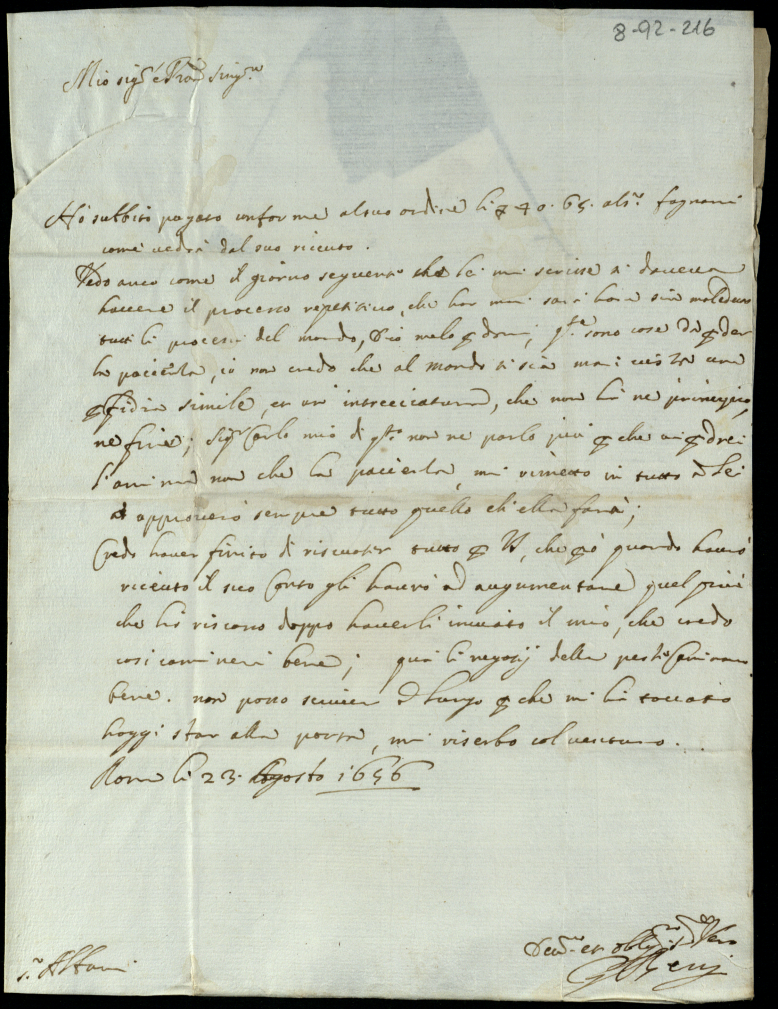 8-92-216
Mio sig.re e Pron sing.re
Hò subbito pagato conforme al suo ordine li 40. 65. al s.r
come vedrà dal suo riceuto.
Vedo anco come il giorno seguente che lei mi scrisse si doveva
havere il processo repetitivo, che hor mai sarà hora
tutti li processi del mondo, Dio me lo perdoni, q.te sono cose da perder
la pacienza, io non credo che al mondo vi sia mai vista una
perfidia simile, et un' intrecciatura, che non hà ne principio,
ne fine; Sig.r Carlo mio di q.to non ne parlo più per che vi perdrei
l'anima non che la pacienza, mi rimetto in tutto à Lei
approverò sempre tutto quello ch'ella farà;
Credo haver finito di riscuoter tutto per, che però quando haverò
riceuto il suo Conto gli haverò ad augumentare quel più
che hò riscosso doppo haverli inviato il mio, che credo
cosi caminerà bene; quà li negotij della peste Caminano
bene. non posso scriver à lungo per che mi hà toccato
hoggi star alla porta, mi riserbo col venturo.
Roma li 23. Agosto 1656
Dev.mo et oblig.mo
s.r